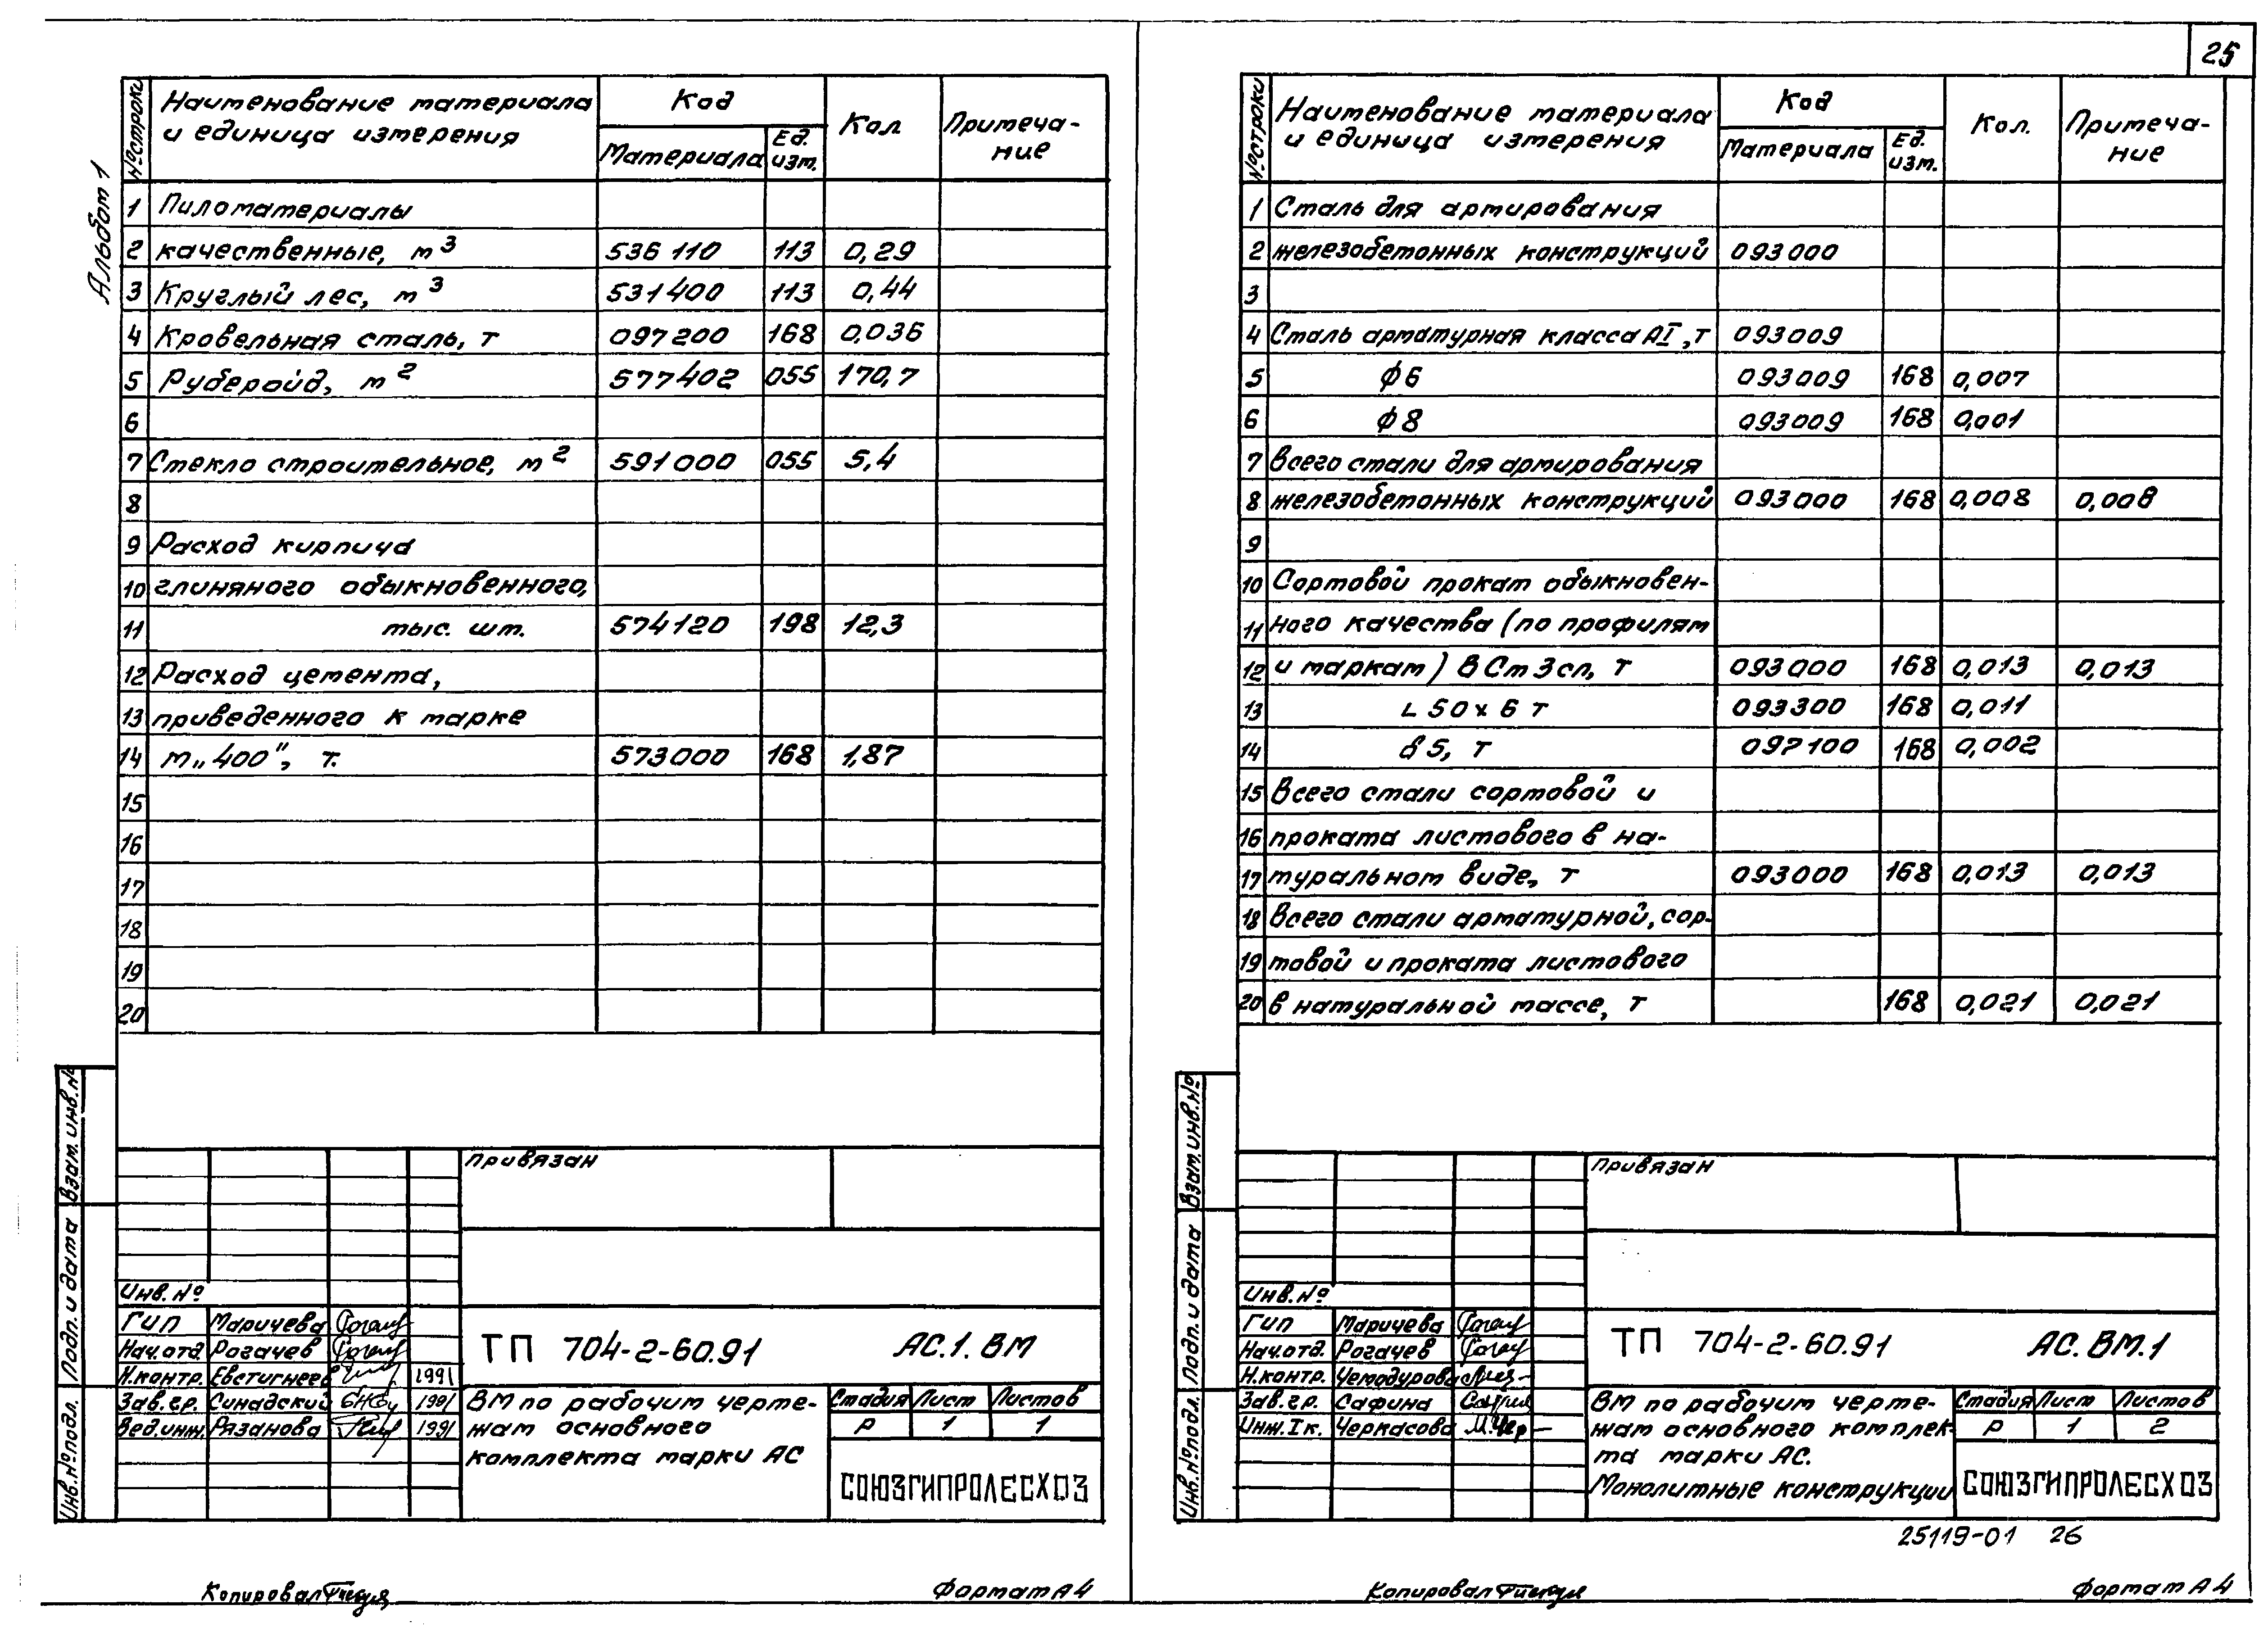 25
Альбом 1
№ строки
Наименование материала
и единица измерения
Код
Материала
Ед.
изм.
Кол
Примеча-
ние
1 Пиломатериалы
2 качественные, м3 536 110 113 0,29
3 Круглый лес, м3 531400 113 0,44
4 Кровельная сталь, т 097200 168 0,036
5 Рубероид, м2 577402 055 170,7
6
7 Стекло строительное, м2 591000 055 5,4
8
9 Расход кирпича
10 глиняного обыкновенного,
11 тыс. шт. 574120 198 12,3
12 Расход цемента,
13 приведенного к марке
14 м„400", т. 573000 168 1,87
15
16
17
18
19
20
Взам. инв. №
Подп. и дата
Инв. № подл.
Привязан
Инв. №
ГИП Маричева
Нач.отд. Рогачев
Н.контр. Евстигнеев 1991
Зав.гр. Синадский 1991
Вед.инж. Рязанова 1991
ТП 704-2-60.91 АС.1.ВМ
ВМ по рабочим черте-
жам основного
комплекта марки АС
Стадия Лист Листов
Р 1 1
СОЮЗГИПРОЛЕСХОЗ
Копировал
Формат А4
№ строки
Наименование материала
и единица измерения
Код
Материала
Ед.
изм.
Кол.
Примеча-
ние
1 Сталь для армирования
2 железобетонных конструкций 093000
3
4 Сталь арматурная класса АI, т 093009
5 ϕ6 093009 168 0,007
6 ϕ8 093009 168 0,001
7 Всего стали для армирования
8 железобетонных конструкций 093000 168 0,008 0,008
9
10 Сортовой прокат обыкновен-
11 ного качества (по профилям
12 и маркам) ВСт3сп, т 093000 168 0,013 0,013
13 L 50×6 т 093300 168 0,011
14 δ5, т 097100 168 0,002
15 Всего стали сортовой и
16 проката листового в на-
17 туральном виде, т 093000 168 0,013 0,013
18 Всего стали арматурной, сор-
19 товой и проката листового
20 в натуральной массе, т 168 0,021 0,021
Взам. инв. №
Подп. и дата
Инв. № подл.
Привязан
Инв. №
ГИП Маричева
Нач.отд. Рогачев
Н.контр. Чемодурова
Зав.гр. Сафина
Инж. I к. Черкасова
ТП 704-2-60.91 АС.ВМ.1
ВМ по рабочим черте-
жам основного комплек-
та марки АС.
Монолитные конструкции
Стадия Лист Листов
Р 1 2
СОЮЗГИПРОЛЕСХОЗ
25119-01 26
Копировал
Формат А4